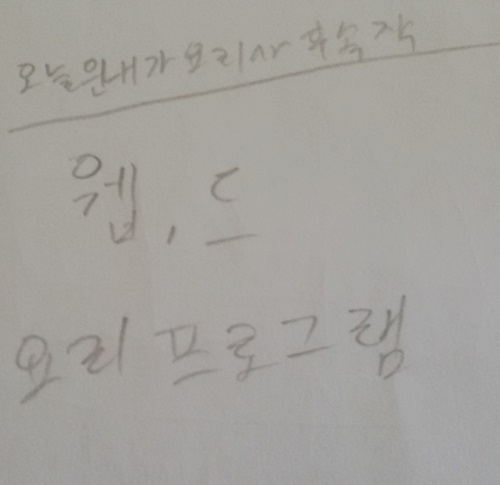 오늘은내가요리사 후속작
웹, 드
요리 프로그램